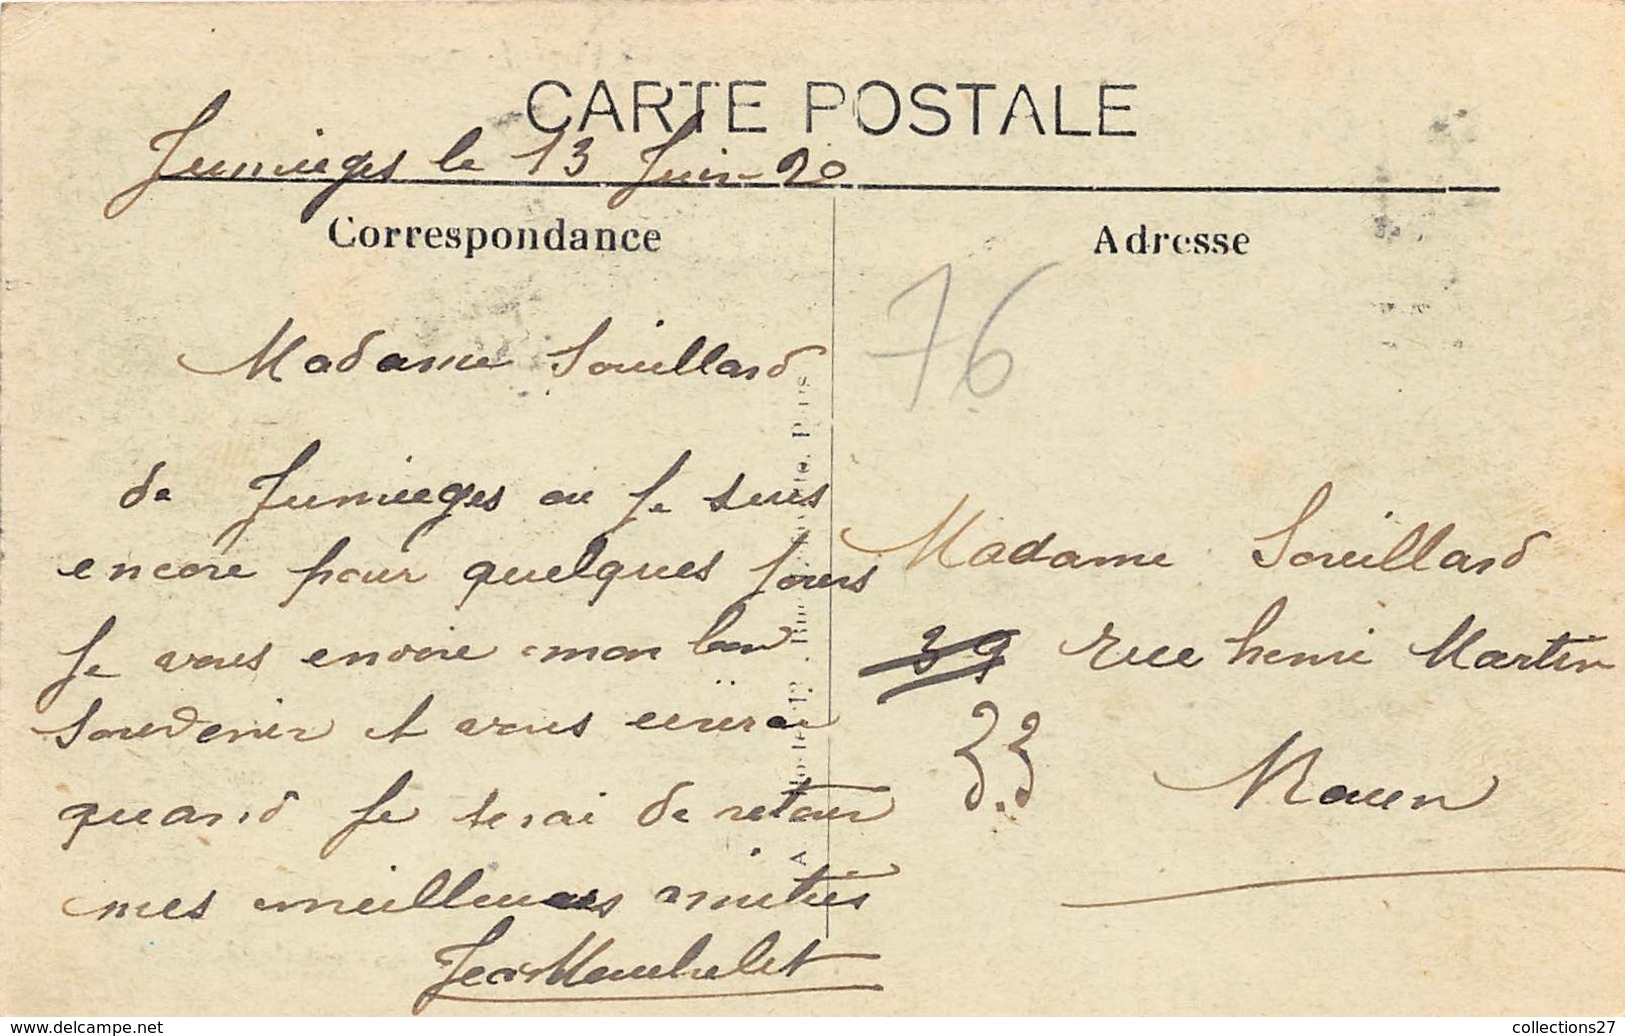 CARTE POSTALE
Jumieges le 13 Juin 20
Correspondance
Madame Souillard
de Jumieges ou Je suis
encore pour quelques Jours
Je vous envoie mon bon
souvenir et vous
quand Je serai de retour
mes meilleures amitiés
Adresse
76
Madame Souillard
39 rue henri Martin
33
Rouen
www.delcampe.net
collections27